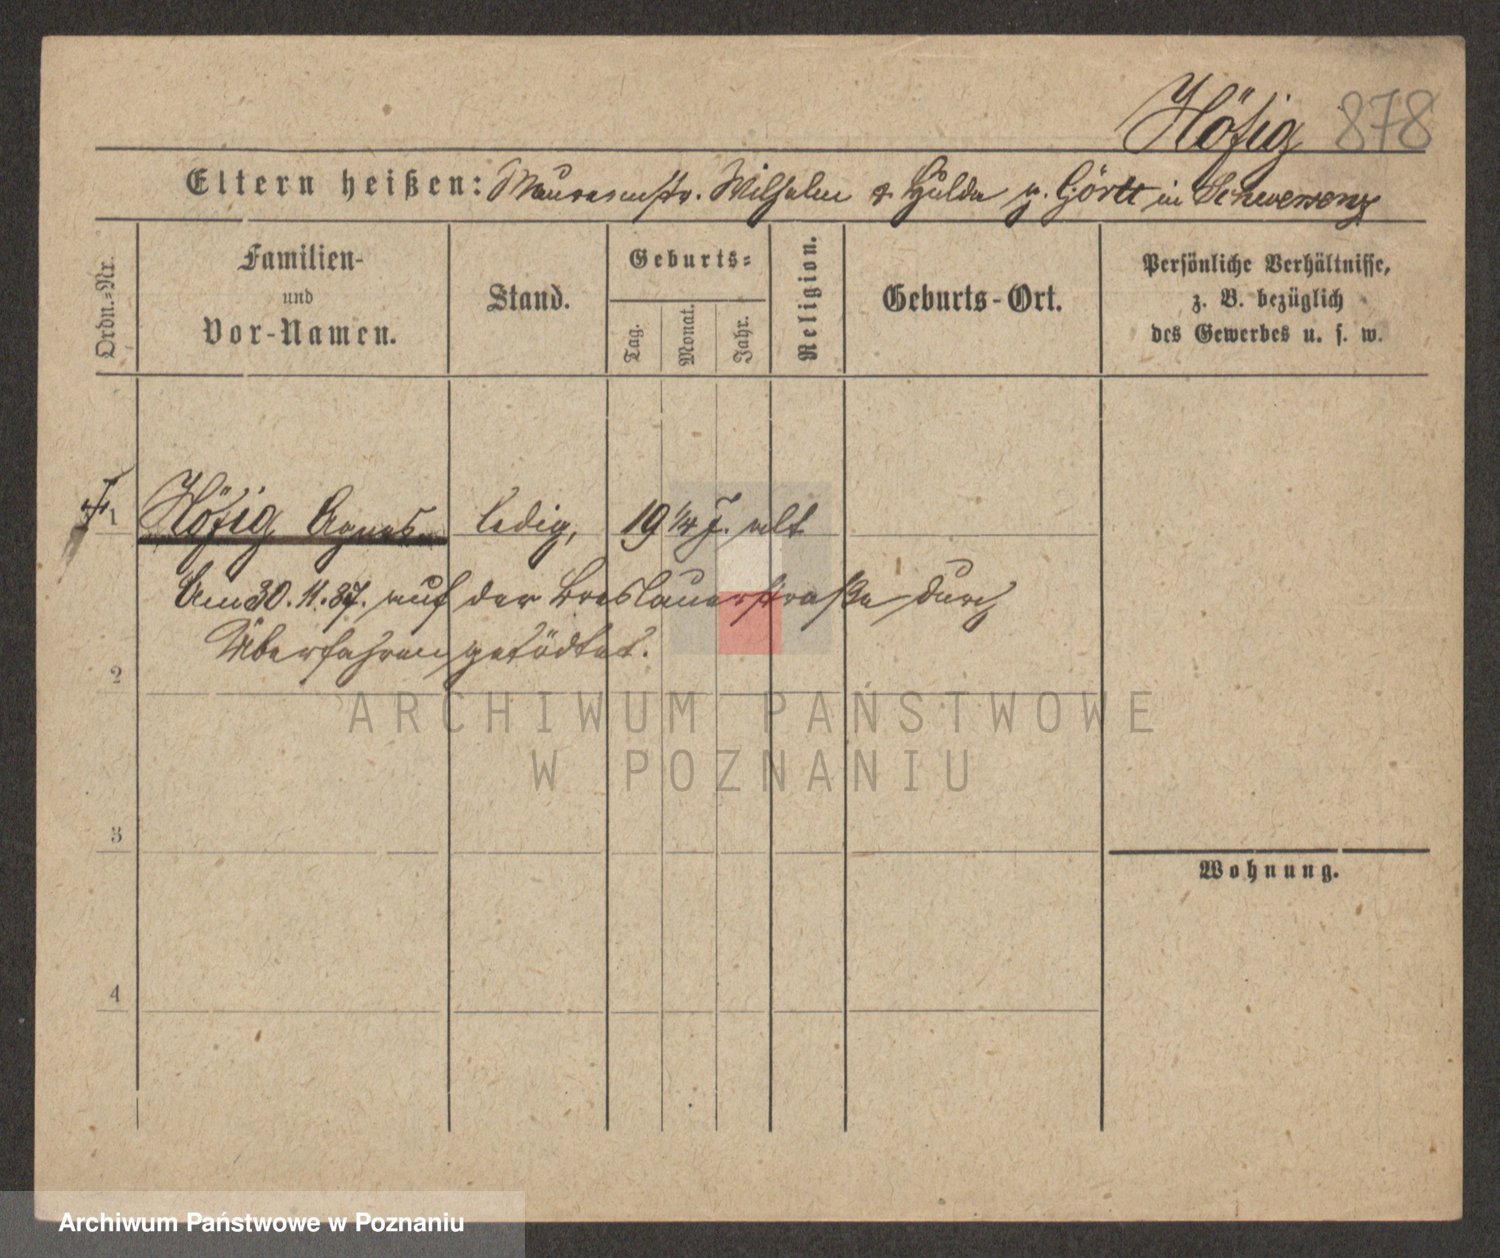 Höfig 878
Eltern heißen: Maurermstr. Wilhelm & Hulda g. Görlt in Schwersenz
Ordn.=Nr.
Familien-
und
Vor-Namen.
Stand.
Geburts=
Tag.
Monat.
Jahr.
Religion.
Geburts-Ort.
Persönliche Verhältnisse,
z. B. bezüglich
des Gewerbes u. s. w.
1 Höfig Agnes ledig, 19 1/4 J. alt
Am 30.11.87. auf der Breslauerstraße durch
Überfahren getödtet.
2
ARCHIWUM PAŃSTWOWE
W POZNANIU
3
Wohnung.
4
Archiwum Państwowe w Poznaniu